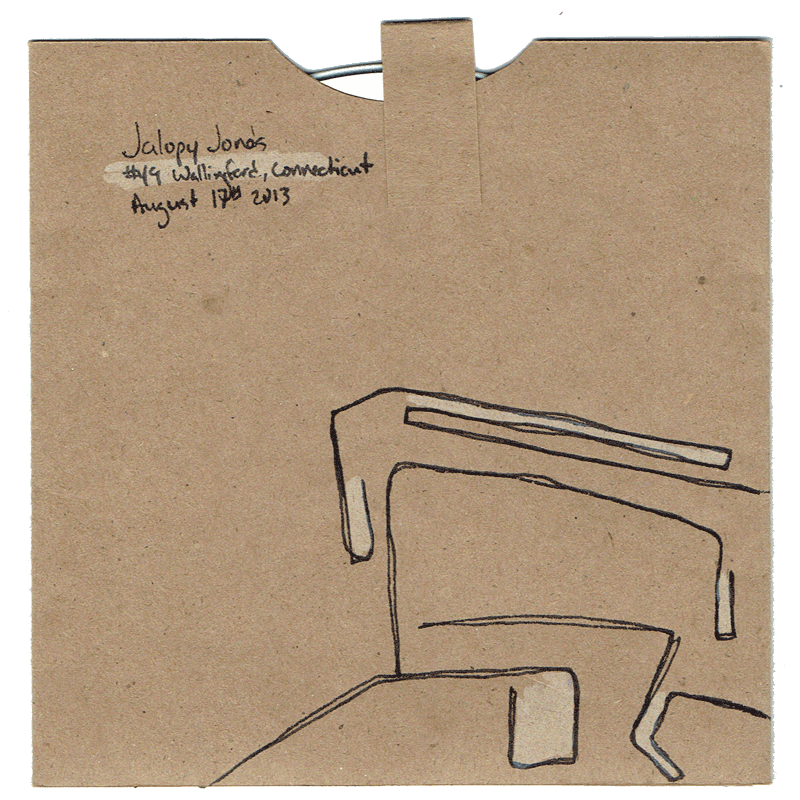 Jalopy Jones
#49 Wallingford, Connecticut
August 17th 2013